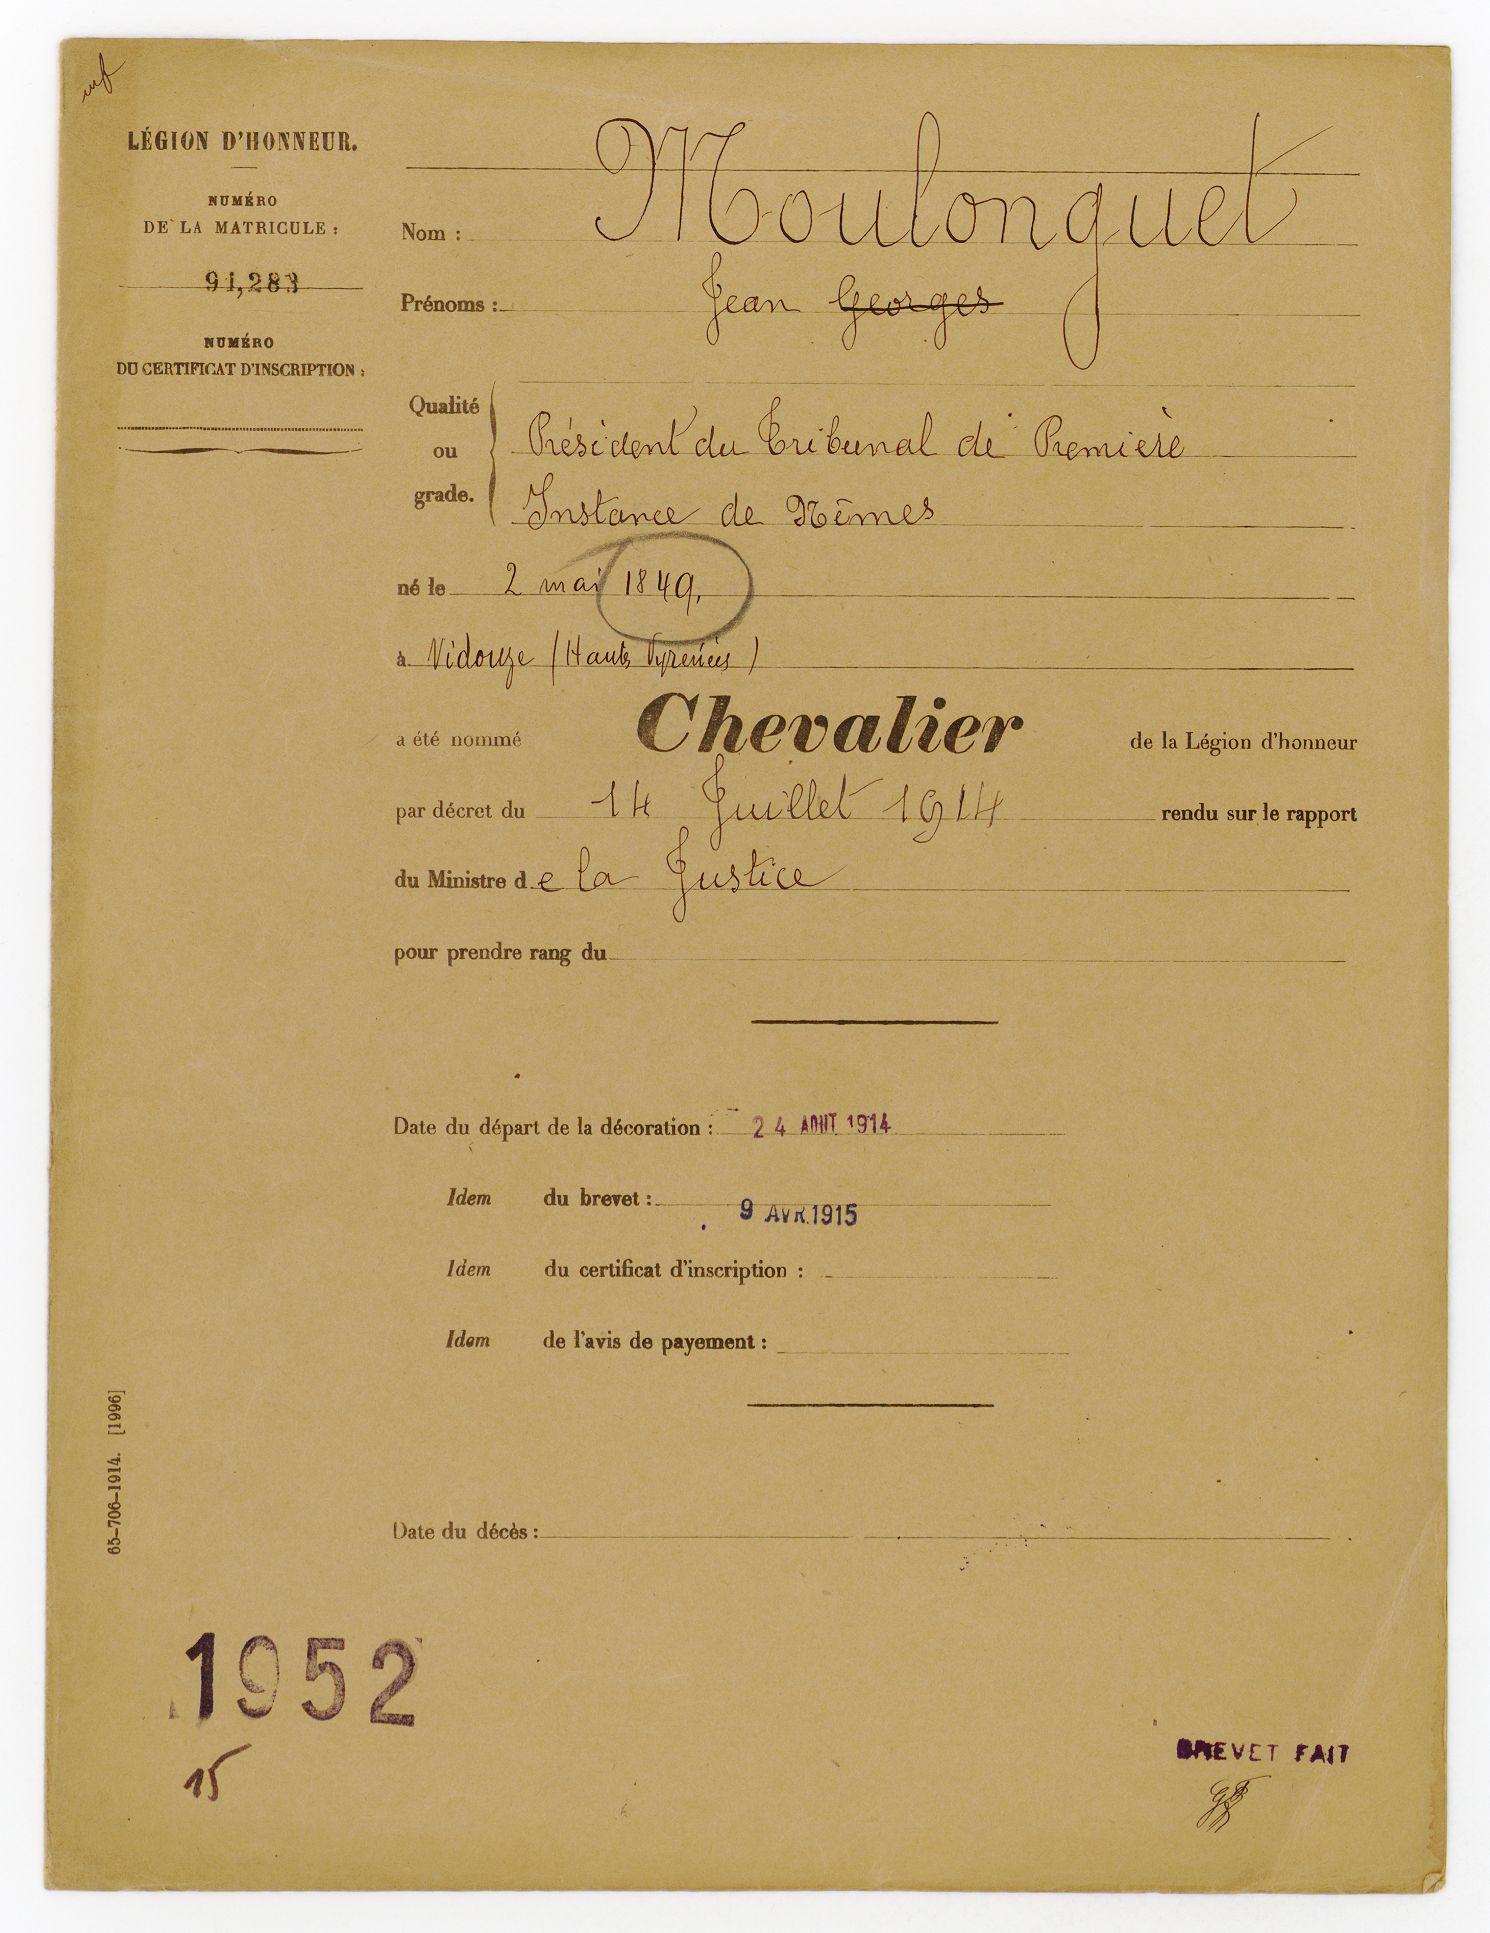 LÉGION D'HONNEUR.
NUMÉRO
DE LA MATRICULE :
91,283
NUMÉRO
DU CERTIFICAT D'INSCRIPTION :
Nom : Moulonguet
Prénoms : Jean Georges
Qualité
ou
grade.
Président du Tribunal de Première
Instance de Nîmes
né le 2 mai 1849.
à Vidouze (Hautes Pyrénées)
a été nommé Chevalier de la Légion d'honneur
par décret du 14 Juillet 1914 rendu sur le rapport
du Ministre de la Justice
pour prendre rang du
Date du départ de la décoration : 24 AOUT 1914
Idem du brevet : 9 AVR. 1915
Idem du certificat d'inscription :
Idem de l'avis de payement :
Date du décès :
65-706-1914. [1996]
1952
15
BREVET FAIT